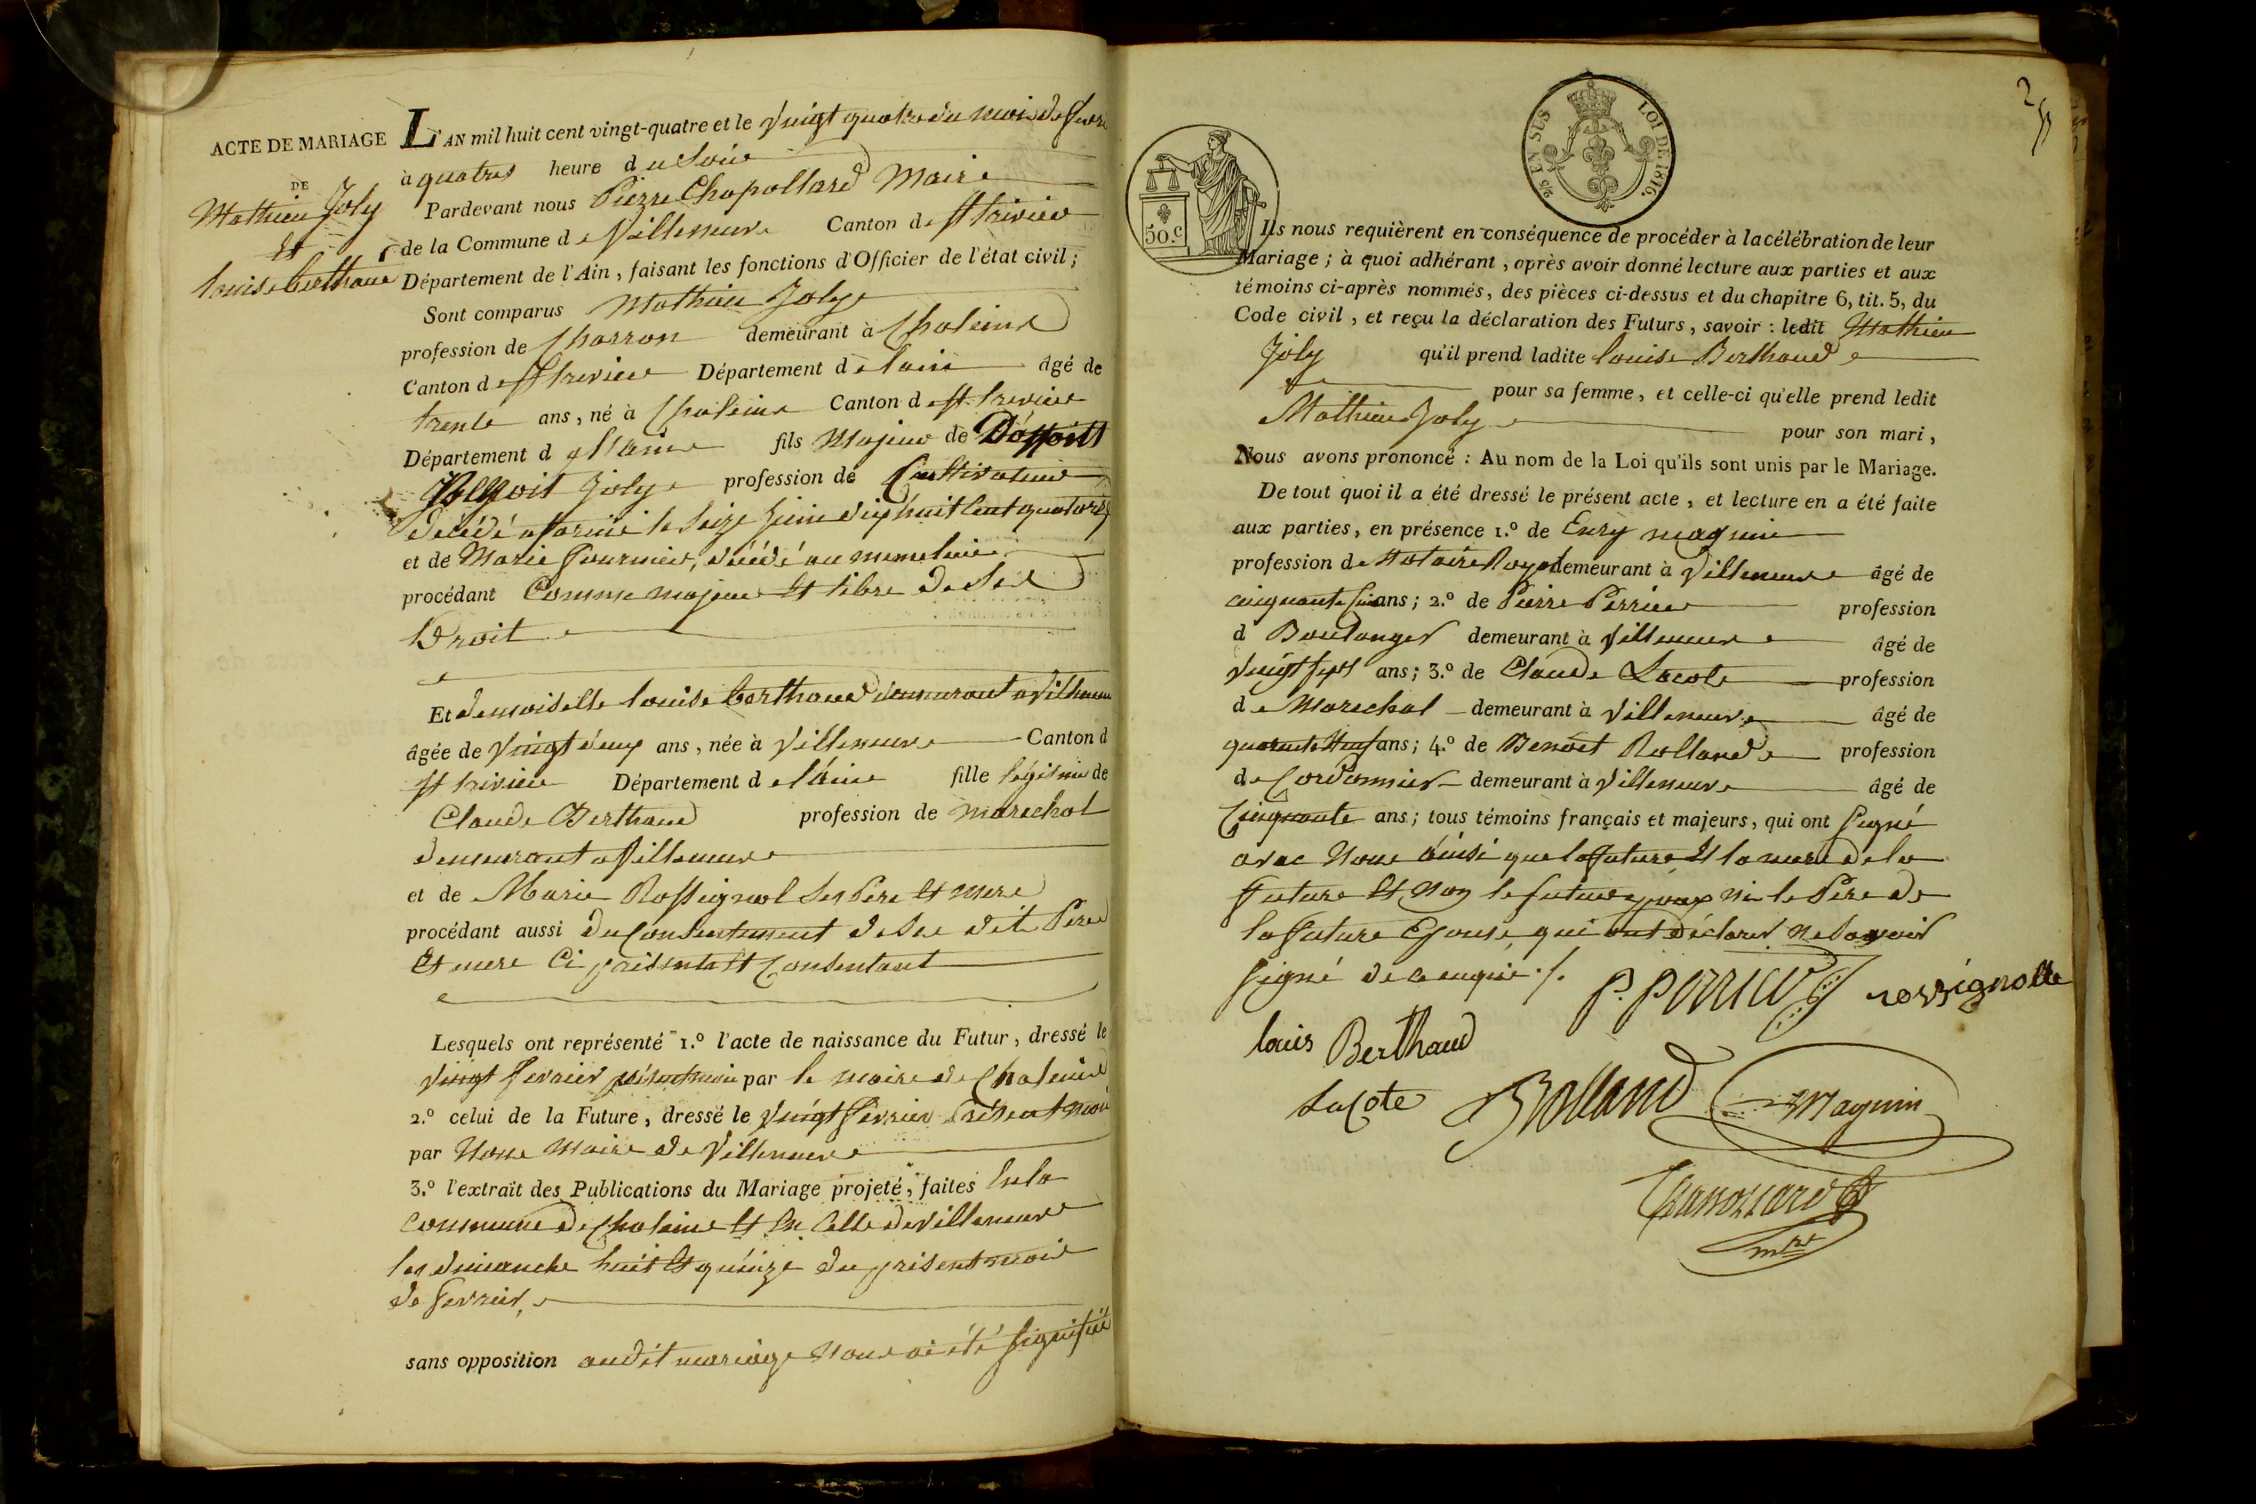 ACTE DE MARIAGE
DE
Mathieu Joly
Et
louise berthaud
L'AN mil huit cent vingt-quatre et le vingt quatre du mois de fevrie
à quatres heure du Soir
Pardevant nous Pierre Chapollard Maire
de la Commune de Villeneuve Canton de St trivier
Département de l'Ain, faisant les fonctions d'Officier de l'état civil;
Sont comparus Mathieu Joly
profession de Charron demeurant à Chaleins
Canton de St trivier Département de lain âgé de
trente ans, né à Chaleins Canton de St trivier
Département de l'ain fils Majeur de Déffunt
Joly profession de Cultivateur
décédé a le Seize Juin dix huit Cent quatorze
et de Marie fournier, décédé au meme lieu
procédant Comme majeur Et libre de Ses
Droit
Et demoiselle louise berthaud demeurant a Villeneuve
âgée de Vingt deux ans, née à Villeneuve Canton d
St trivier Département de l'ain fille légitime de
Claude Berthaud profession de marechal
demeurant a Villeneuve
et de Marie Rossignol Ses Pere Et mere
procédant aussi du Consentement de Ses dit Pere
Et mere Ci présents Et Consentant
Lesquels ont représenté 1.º l'acte de naissance du Futur, dressé le
Vingt fevrier présent mois par le maire de Chaleins
2.º celui de la Future, dressé le Vingt fevrier Présent mois
par Nous Maire de Villeneuve
3.º l'extrait des Publications du Mariage projeté, faites En la
Commune de Chaleins Et En Celle de Villeneuve
les dimanche huit Et quinze du présent mois
de fevrier,
sans opposition audit mariage Nous ai été Signifiée
LOI DE 1816.
EN SUS
50.C
Ils nous requièrent en conséquence de procéder à la célébration de leur
Mariage; à quoi adhérant, après avoir donné lecture aux parties et aux
témoins ci-après nommés, des pièces ci-dessus et du chapitre 6, tit. 5, du
Code civil, et reçu la déclaration des Futurs, savoir : ledit Mathieu
Joly qu'il prend ladite louise Berthaud
pour sa femme, et celle-ci qu'elle prend ledit
Mathieu Joly pour son mari,
Nous avons prononcé : Au nom de la Loi qu'ils sont unis par le Mariage.
De tout quoi il a été dressé le présent acte, et lecture en a été faite
aux parties, en présence 1.º de Enry magnin
profession de Notaire Royal demeurant à Villeneuve âgé de
cinquante ans; 2.º de Pierre Perrier profession
d Boulanger demeurant à Villeneuve âgé de
Vingt Sept ans; 3.º de Claude Lacote profession
de Marechal demeurant à Villeneuve âgé de
quarante Neuf ans; 4.º de Benoit Rolland profession
de Cordonnier demeurant à Villeneuve âgé de
Cinquante ans; tous témoins français et majeurs, qui ont Signé
avec Nous ainsi que la future Et la mere de la
future Et Non le futur Epoux Ni le Pere de
la future Epouse qui ont déclarer Ne Savoir
Signé de ce enquis ./.
P. perrier rossignolle
louis Berthaud
Lacote Rolland Magnin
Chapollard
mre